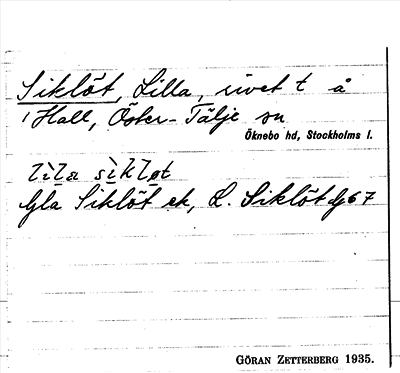 Siklöt, Lilla, rivet t å
i Hall, Öster-Tälje sn
Öknebo hd, Stockholms l.
lìla sìkløt
Lilla Siklöt ek, L. Siklöt G67
GÖRAN ZETTERBERG 1935.